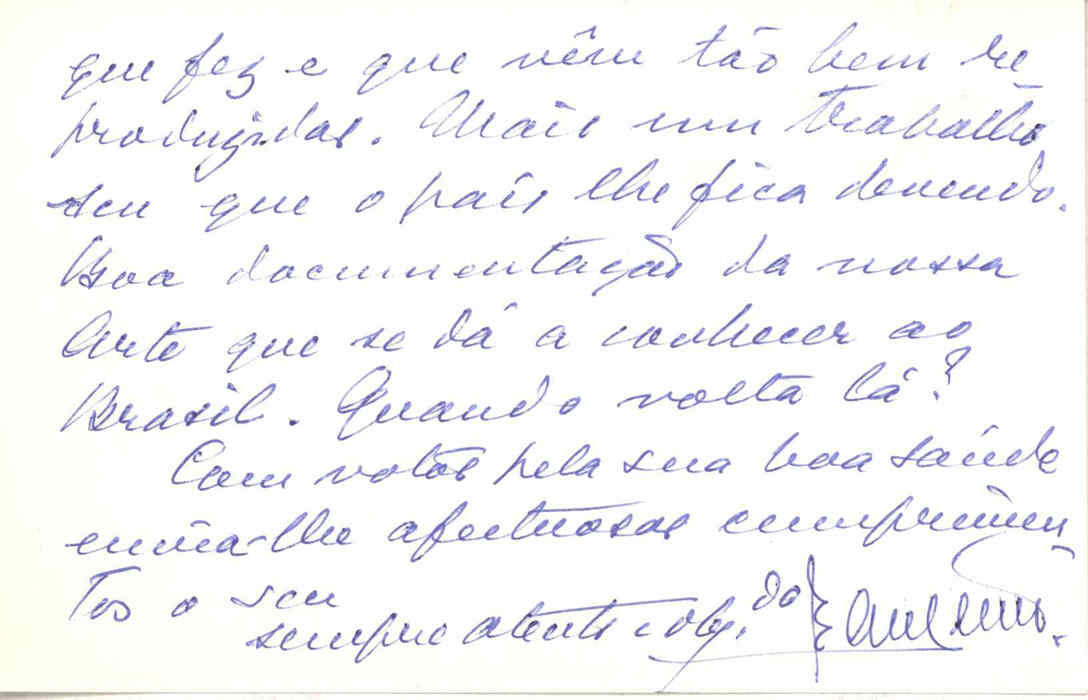 que fez e que vêm tão bem re-
produzidas. Mais um trabalho
seu que o país lhe fica devendo.
Boa documentação da nossa
Arte que se dá a conhecer ao
Brasil. Quando volta lá?
Com votos pela sua boa saúde
envia-lhe afectuosos cumprimen-
tos o seu
sempre atento e obg.do